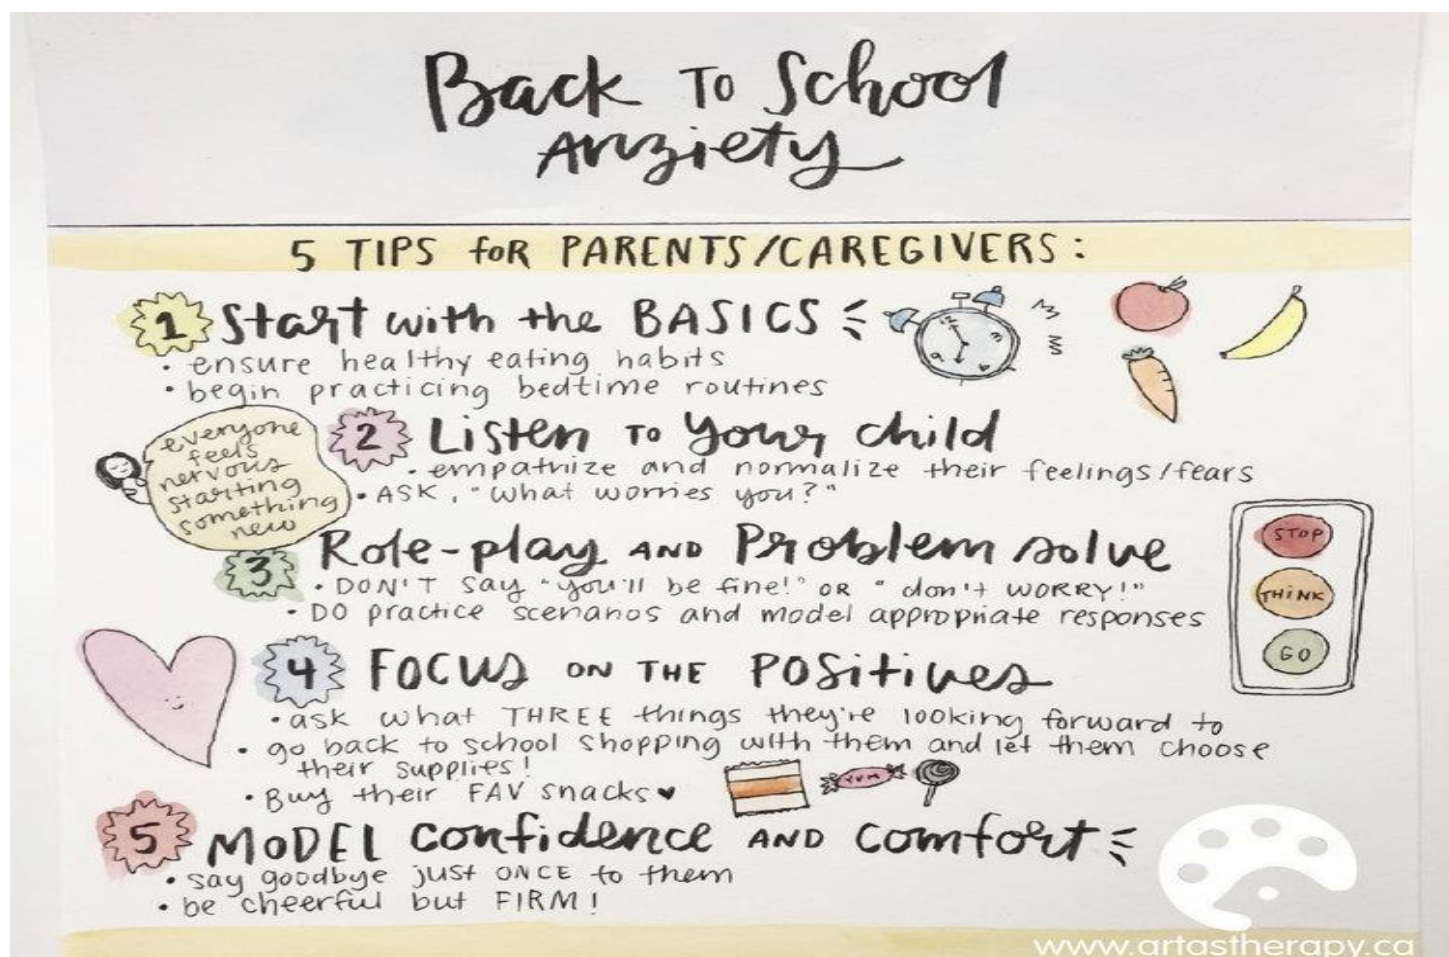 Back To School
Anxiety
5 TIPS foR PARENTS/CAREGIVERS:
1 Start with the BASICS
• ensure healthy eating habits
• begin practicing bedtime routines
everyone
feels
nervous
starting
something
new
2 Listen To Your child
• empathize and normalize their feelings/fears
• ASK, "what worries you?"
3 Role-play AND Problem solve
• DON'T say "you'll be fine!" OR "don't WORRY!"
• DO practice scenarios and model appropriate responses
STOP
THINK
GO
4 FOCUS ON THE POSitives
• ask what THREE things they're looking forward to
• go back to school shopping with them and let them choose
their supplies!
• Buy their FAV snacks ♥
YUM
5 MODEL confidence AND comfort
• say goodbye just ONCE to them
• be cheerful but FIRM!
www.artastherapy.ca